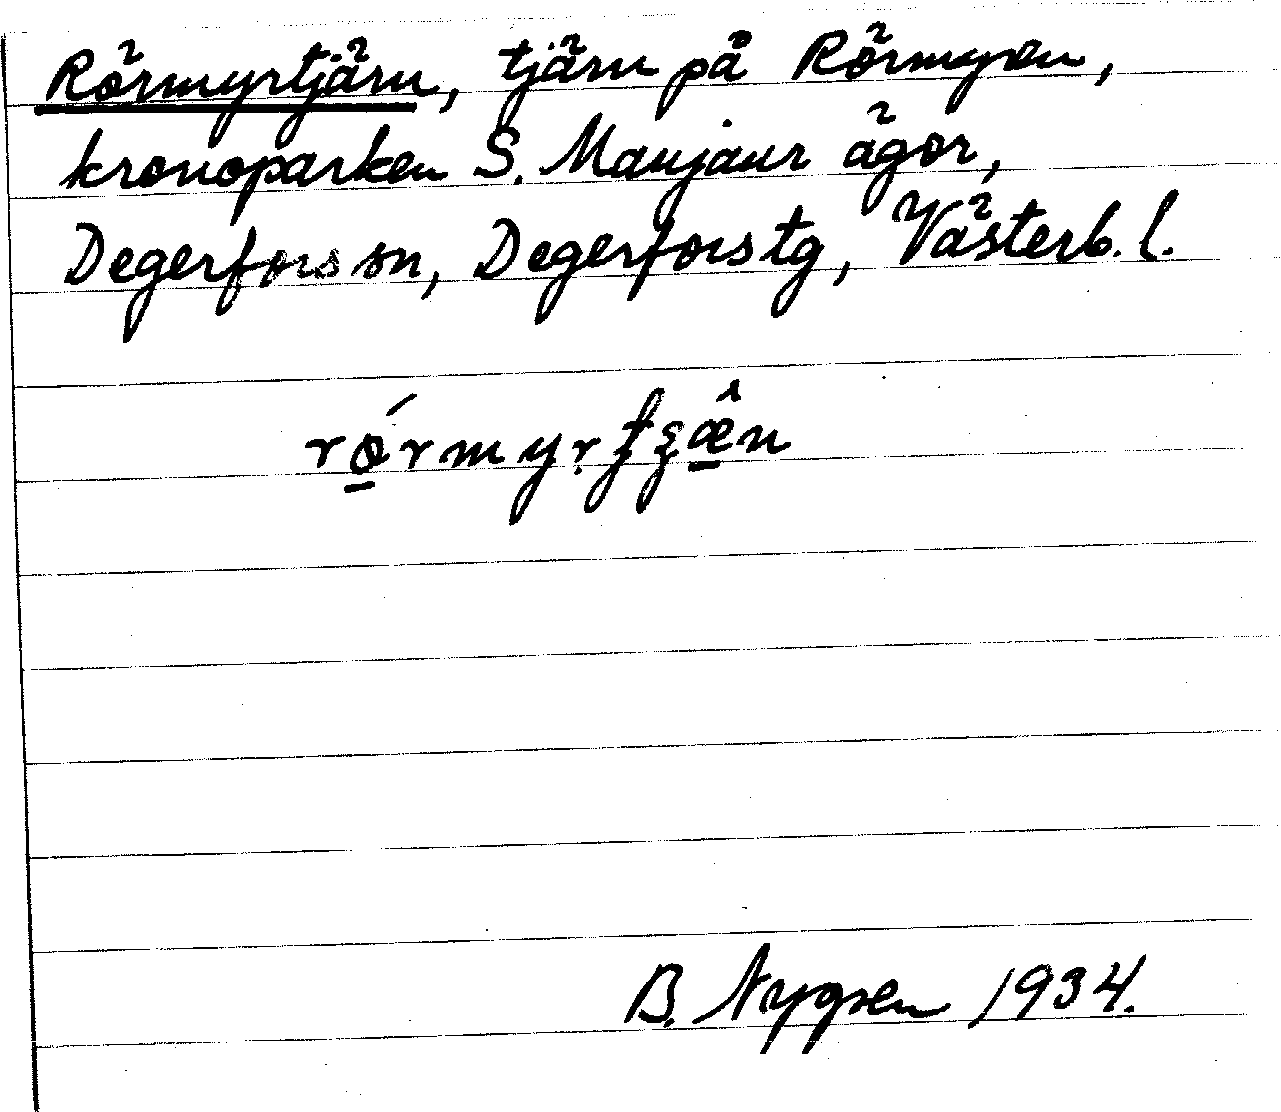 Rörmyrtjärn, tjärn på Rörmyren,
kronoparken S. Maujaur ägor,
Degerfors sn, Degerfors tg, Västerb. l.
B. Nygren 1934.